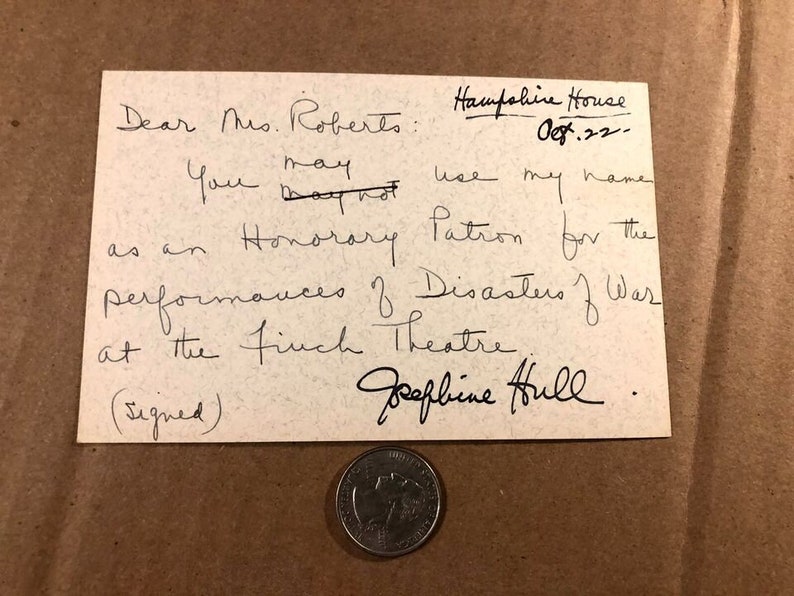 Hampshire House
Oct. 22-
Dear Mrs. Roberts:
You may
may not use my name
as an Honorary Patron for the
performances of Disasters of War
at the Finch Theatre
Josephine Hull.
(signed)